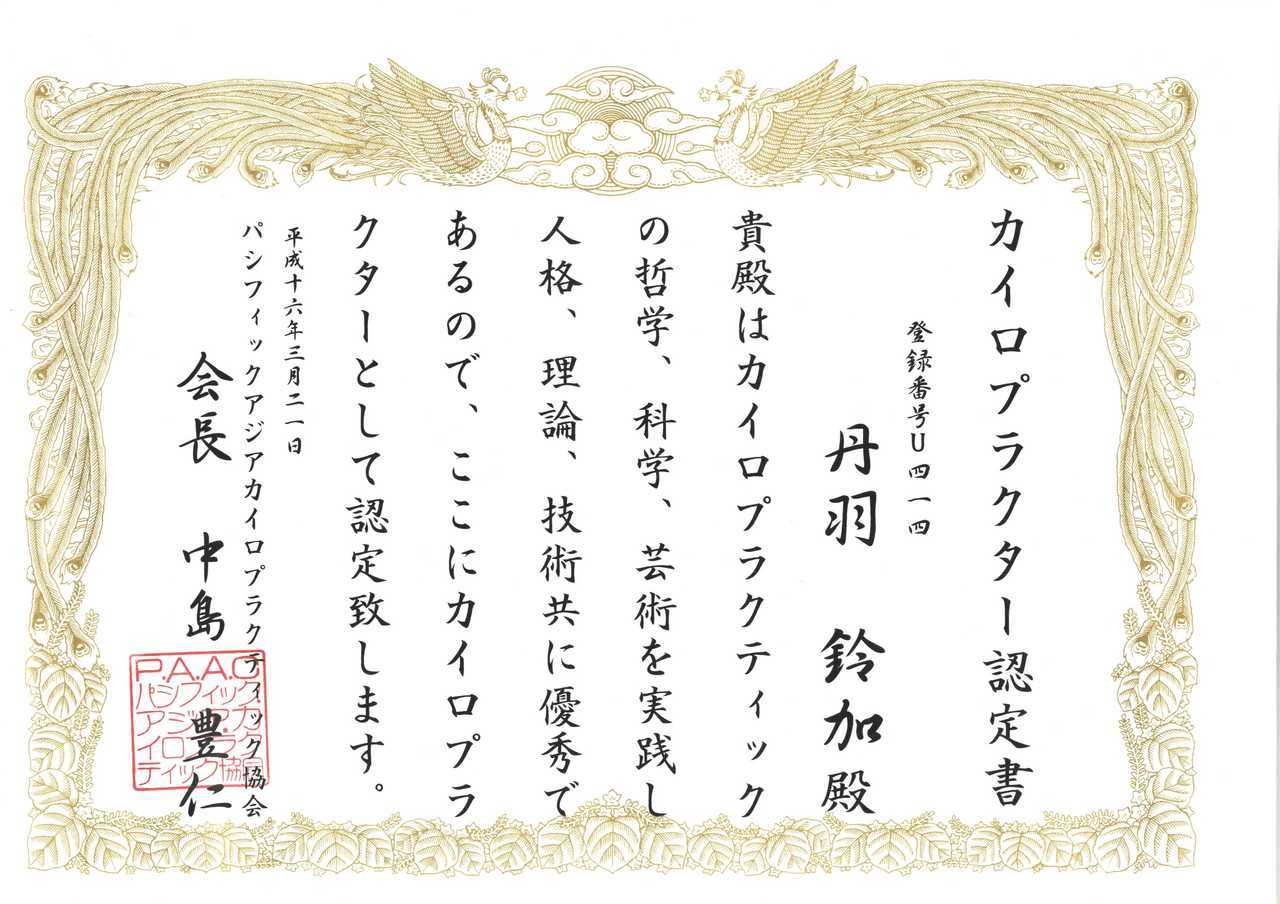 カイロプラクター認定書
登録番号U四一四
丹羽 鈴加殿
貴殿はカイロプラクティック
の哲学、科学、芸術を実践し
人格、理論、技術共に優秀で
あるので、ここにカイロプラ
クターとして認定致します。
平成十六年三月二一日
パシフィックアジアカイロプラクティック協会
会長 中島 豊仁
P.A.A.C
パシフィック
アジア カ
イロプラク
ティック協会